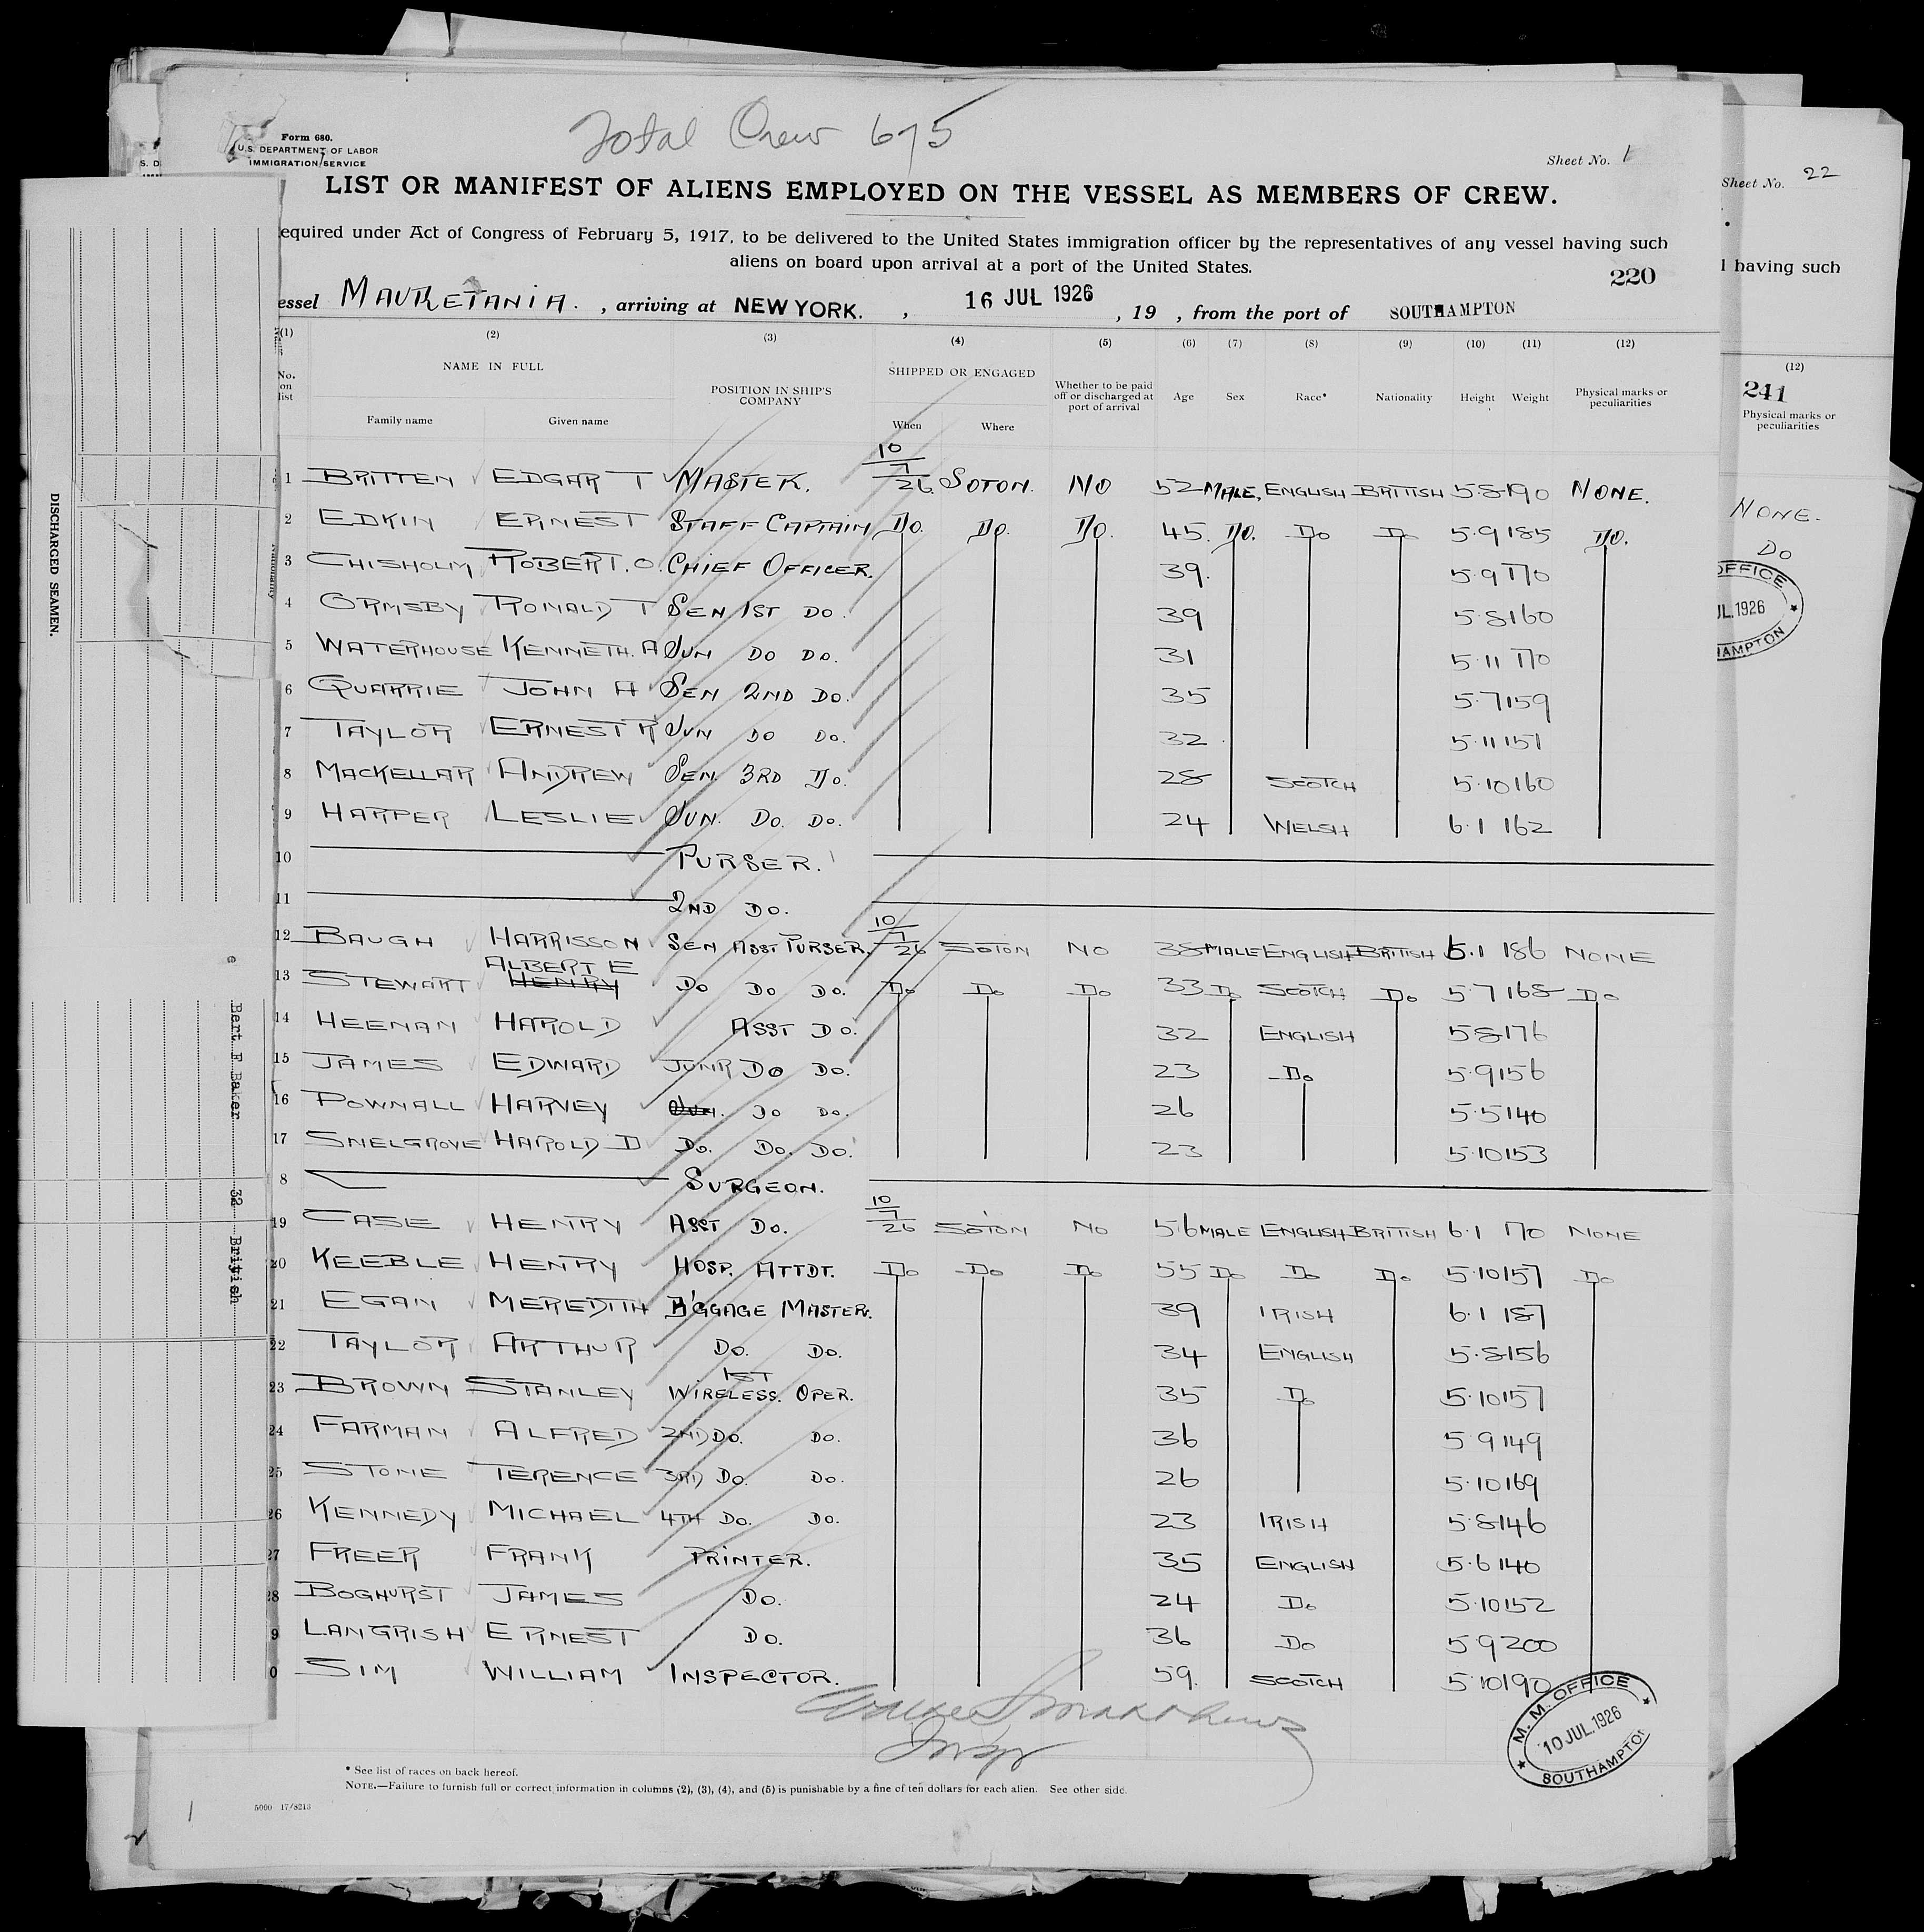 Total Crew 675
Form 680.
U.S. DEPARTMENT OF LABOR
IMMIGRATION SERVICE
Sheet No. 1
LIST OR MANIFEST OF ALIENS EMPLOYED ON THE VESSEL AS MEMBERS OF CREW.
equired under Act of Congress of February 5, 1917, to be delivered to the United States immigration officer by the representatives of any vessel having such
aliens on board upon arrival at a port of the United States.
220
essel MAURETANIA. , arriving at NEW YORK. , 16 JUL 1926 , 19 , from the port of SOUTHAMPTON
(1) (2) (3) (4) (5) (6) (7) (8) (9) (10) (11) (12)
No. on list NAME IN FULL POSITION IN SHIP'S COMPANY SHIPPED OR ENGAGED Whether to be paid off or discharged at port of arrival Age Sex Race* Nationality Height Weight Physical marks or peculiarities
Family name Given name When Where
1 BRITTEN EDGAR T MASTER. 10/7/26. SOTON. NO 52 MALE. ENGLISH BRITISH 5.8 190 NONE.
2 EDKIN ERNEST STAFF CAPTAIN DO. DO. DO. 45. DO. DO DO 5.9 185 DO.
3 CHISHOLM ROBERT. O. CHIEF OFFICER. 39. 5.9 170
4 ORMSBY RONALD T SEN 1ST DO. 39 5.8 160
5 WATERHOUSE KENNETH. A JUN DO DO. 31 5.11 170
6 QUARRIE JOHN A SEN 2ND DO. 35 5.7 159
7 TAYLOR ERNEST R JUN DO DO. 32 5.11 151
8 MACKELLAR ANDREW SEN. 3RD DO. 28 SCOTCH 5.10 160
9 HARPER LESLIE JUN. DO. DO. 24 WELSH 6.1 162
10 PURSER.
11 2ND DO.
12 BAUGH HARRISSON SEN ASST PURSER. 10/7/26 SOTON NO 38 MALE ENGLISH BRITISH 6.1 186 NONE
ALBERT E
13 STEWART HENRY DO DO DO. DO DO DO 33 DO SCOTCH DO 5.7 168 DO
14 HEENAN HAROLD ASST DO. 32 ENGLISH 5.8 176
15 JAMES EDWARD JUNR DO DO. 23 DO 5.9 156
16 POWNALL HARVEY JUN. DO DO. 26 5.5 140
17 SNELGROVE HAROLD D DO. DO. DO. 23 5.10 153
8 SURGEON.
19 CASE HENRY ASST DO. 10/7/26 SOTON NO 56 MALE ENGLISH BRITISH 6.1 170 NONE
20 KEEBLE HENRY HOSP. ATTDT. DO DO DO 55 DO DO DO 5.10 157 DO
21 EGAN MEREDITH B'GGAGE MASTER. 39 IRISH 6.1 187
22 TAYLOR ARTHUR DO. DO. 34 ENGLISH 5.8 156
1ST
23 BROWN STANLEY WIRELESS. OPER. 35 DO 5.10 157
24 FARMAN ALFRED 2ND DO. DO. 36 5 9 149
25 STONE TERENCE 3RD DO. DO. 26 5.10 169
26 KENNEDY MICHAEL 4TH DO. DO. 23 IRISH 5.8 146
27 FREER FRANK PRINTER. 35 ENGLISH 5.6 140
28 BOGHURST JAMES DO. 24 DO 5.10 152
9 LANGRISH ERNEST DO. 36 DO 5 9 200
0 SIM WILLIAM INSPECTOR. 59. SCOTCH 5 10 190
Insp
M. M. OFFICE
10 JUL. 1926
SOUTHAMPTON
* See list of races on back hereof.
NOTE.—Failure to furnish full or correct information in columns (2), (3), (4), and (5) is punishable by a fine of ten dollars for each alien. See other side.
5000 17/8213
DISCHARGED SEAMEN.
Bert F. Baker 32 British
Sheet No. 22
having such
(12)
241
Physical marks or
peculiarities
NONE.
DO
OFFICE
JL. 1926
HAMPTON